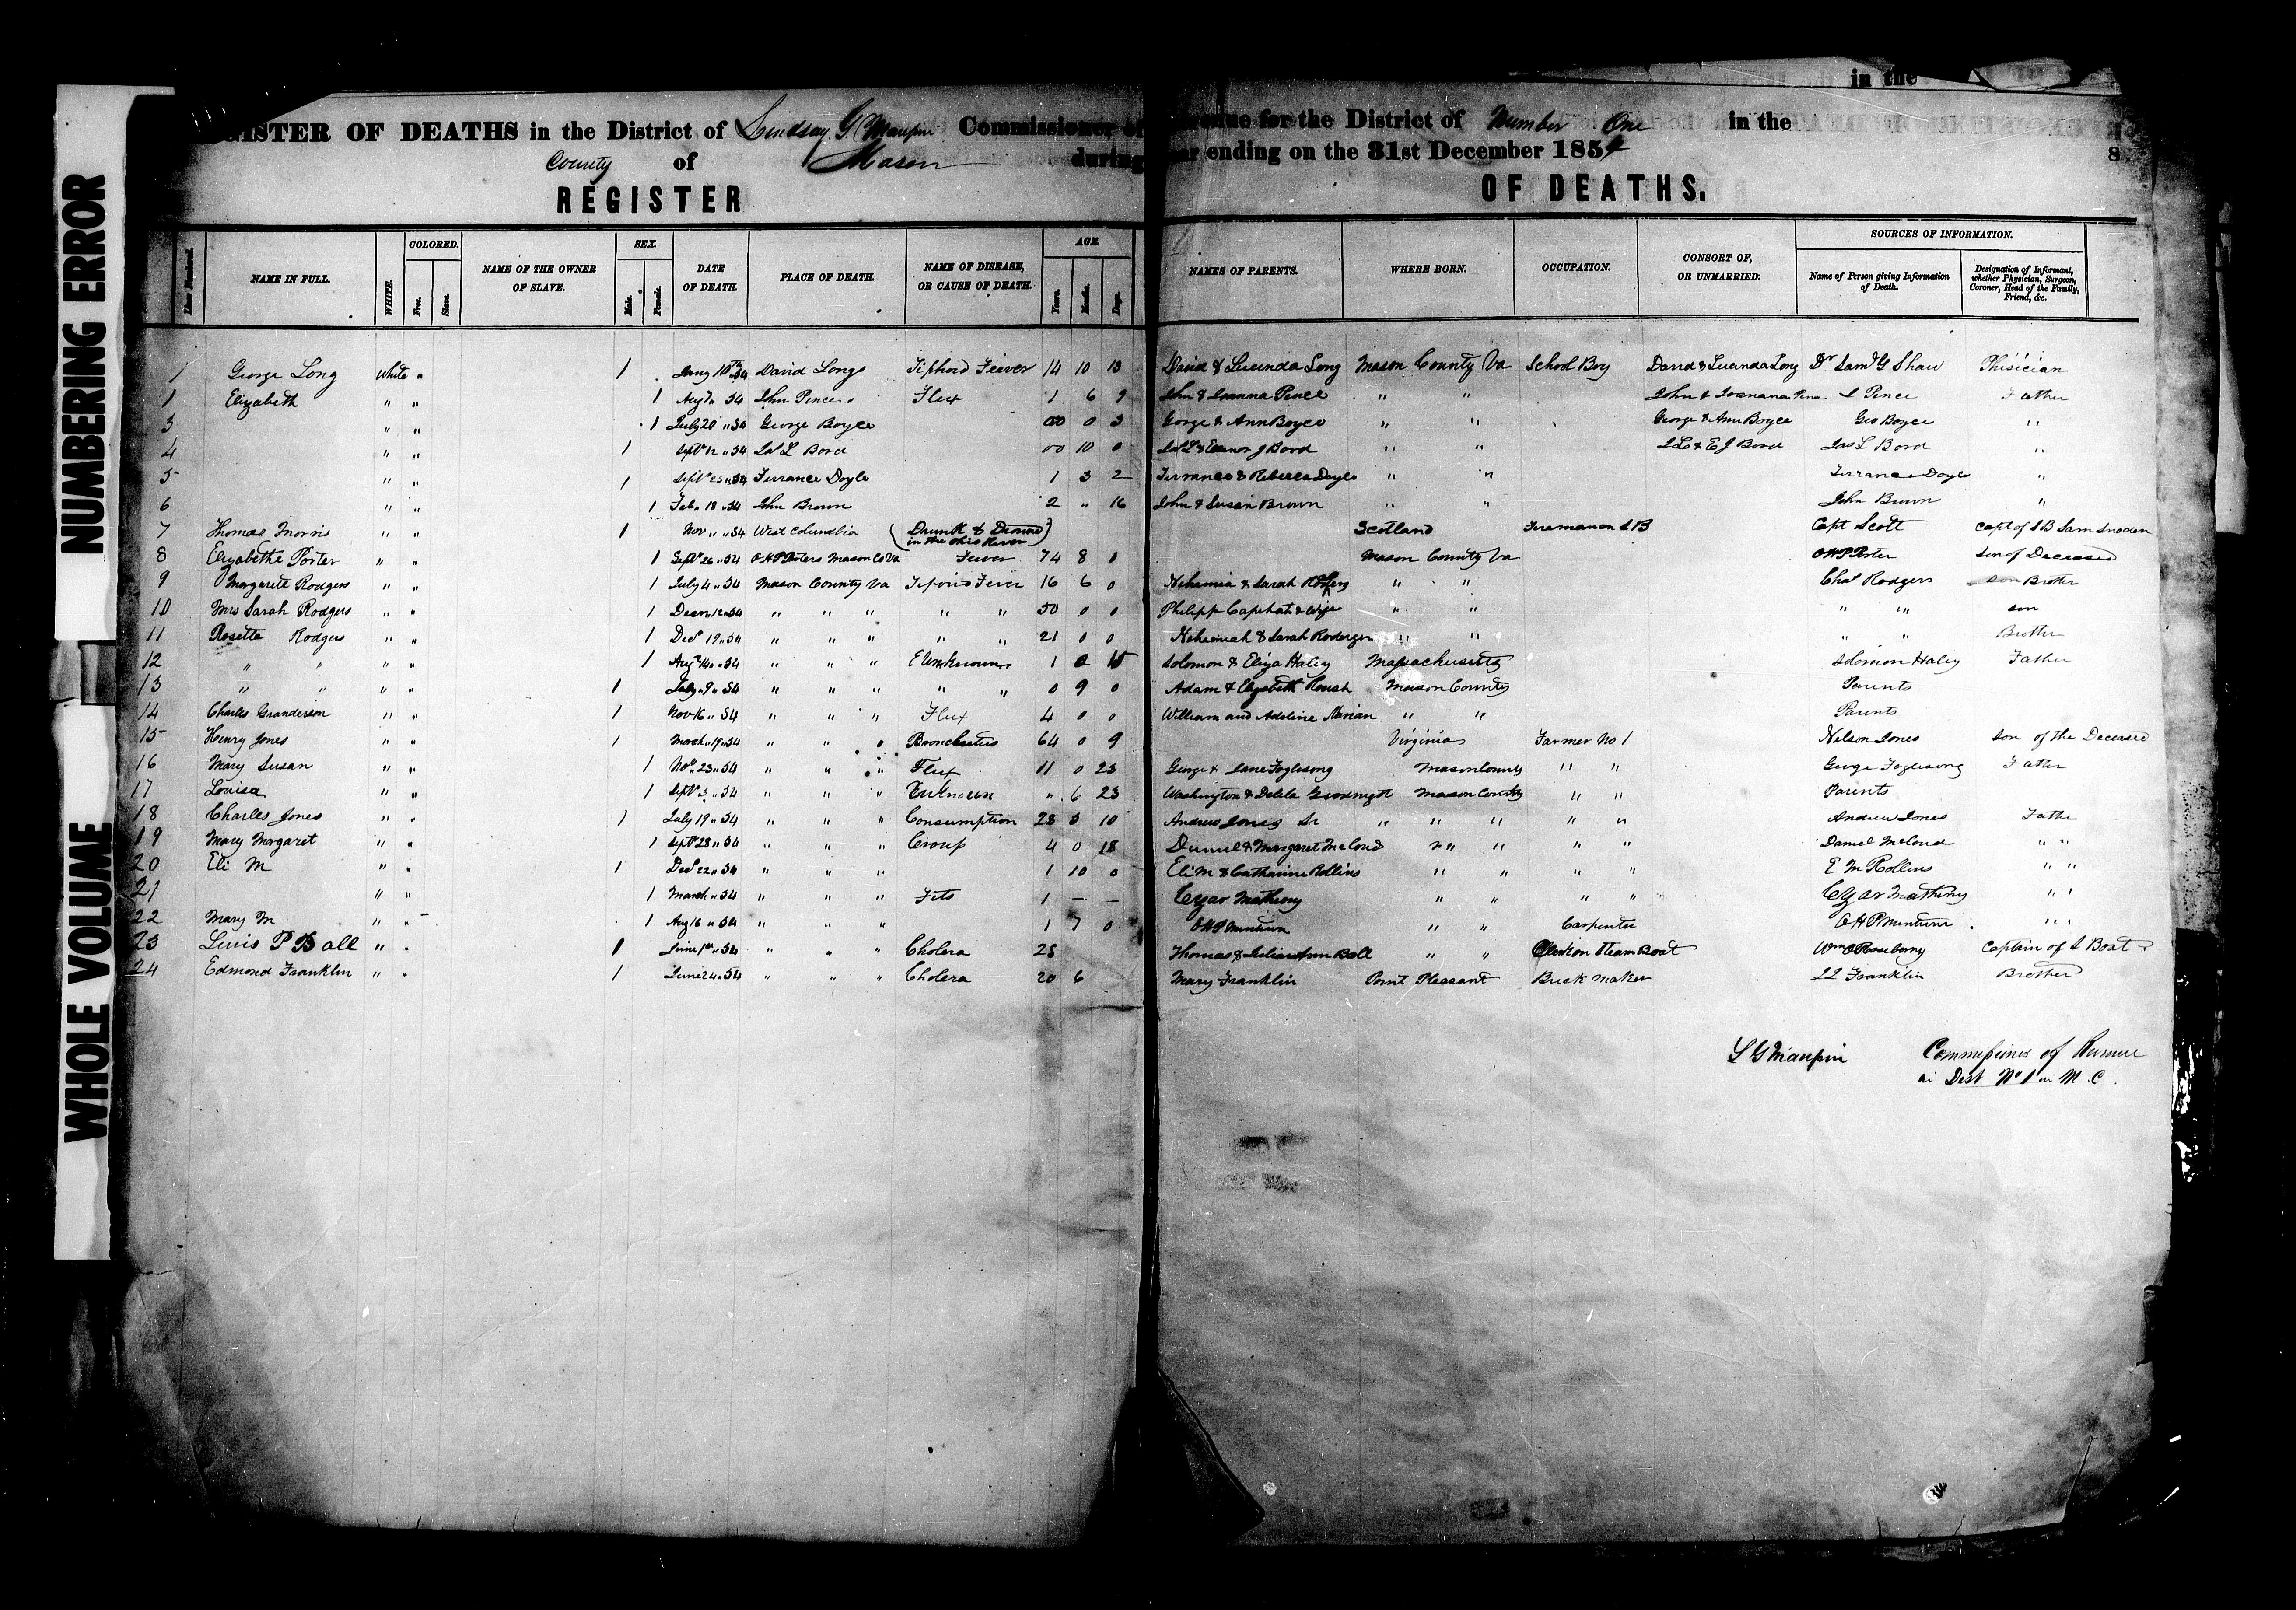 in the
NUMBERING ERROR
WHOLE VOLUME
GISTER OF DEATHS in the District of Lindsay G. Maupin Commissioner of
enue for the District of Number One in the
County of Mason during
ar ending on the 31st December 1854
8
REGISTER
OF DEATHS.
NAME IN FULL. WHITE. COLORED. Free. Slave. NAME OF THE OWNER OF SLAVE. SEX. Male. Female. DATE OF DEATH. PLACE OF DEATH. NAME OF DISEASE, OR CAUSE OF DEATH. AGE. Years. Months. Days. NAMES OF PARENTS. WHERE BORN. OCCUPATION. CONSORT OF, OR UNMARRIED. SOURCES OF INFORMATION. Name of Person giving Information of Death. Designation of Informant, whether Physician, Surgeon, Coroner, Head of the Family, Friend, &c.
1 George Long White " 1 Jany 10th 54 David Longs Tiphord Feever 14 10 13 David & Lucinda Long Mason County Va School Boy David & Lucinda Long Dr Saml G Shaw Phisician
1 Elizabeth " " 1 Aug 7 " 54 John Pences Flux 1 6 9 John & Joanna Pence " " John & Joanana J Pence Father
3 " " 1 July 20 " 54 George Boyce 00 0 3 Gorge & Ann Boyce " " George & Ann Boyce Geo Boyce "
4 " " 1 Sept 12 " 54 Jas L Bord 00 10 0 Jas L & Eleanor J Bord " " J L & E J Bord Jas L Bord "
5 " " 1 Sept 25 " 54 Terrance Doyle 1 3 2 Terrance & Rebecca Doyle " " Terrance Doyle "
6 " " 1 Feb 18 " 54 John Brown 2 " 16 John & Susan Brown " " John Brown "
7 Thomas Morris " " 1 Nov " " 54 West Columbia (Drunk & Dround in the Ohio River) Scotland Fireman on S B Capt Scott Capt of S B Sam Snoden
8 Elizabethe Porter " " 1 Sept 26 " 54 O H P Porters Mason Co Va Fever 74 8 0 Mason County Va O H P Porter Son of Deceased
9 Margarett Rodgers " " 1 July 4 " 54 Mason County Va Tifoid Fever 16 6 0 Nehemia & Sarah Rodgers " " Chas Rodgers Brother
10 Mrs Sarah Rodgers " " 1 Decr 12 " 54 " " " " " 50 0 0 Philipp Capehat & Wife " " " " son
11 Rosetta Rodgers " " 1 Dec 19 " 54 " " " " " 21 0 0 Nehemiah & Sarah Rodergers " " " " Brother
12 " " " " 1 Aug 14 " 54 " " " Unknown 1 15 Solomon & Eliza Haley Massachusetts Solomon Haley Father
13 " " " " 1 July 9 " 54 " " " " " 0 9 0 Adam & Elizabeth Roush Mason County Parents
14 Charles Granderson " " 1 Nov 16 " 54 " " " Flux 4 0 0 William and Adeline " " Parents
15 Henry Jones " " 1 March 19 " 54 " " " Bronchetis 64 0 9 Virginia Farmer No 1 Nelson Jones Son of the Deceased
16 Mary Susan " " 1 Nov 23 " 54 " " " Flux 11 0 23 George & Jane Foglesong Mason County " " George Foglesong Father
17 Louisa " " 1 Sept 3 " 54 " " " Unknown " 6 23 Washington & Delila Mason County " " Parents
18 Charles Jones " " 1 July 19 " 54 " " " Consumption 23 5 10 Andrew Jones Sr " " " " " Andrew Jones Father
19 Mary Margaret " " 1 Sept 28 " 54 " " " Croup 4 0 18 Daniel & Margaret McCloud " " " " " Daniel McCloud " "
20 Eli M " " 1 Decr 22 " 54 " " " 1 10 0 Eli M & Catharine Rollins " " " " E M Rollins " "
21 " " 1 March " 54 " " " Fits 1 — — Cezar Matheny " " " " Cezar Matheny " "
22 Mary M " " 1 Aug 16 " 54 " " " 1 7 0 O H P Minturn " " Carpenter O H P Minturn " "
23 Luis P Ball " " 1 June 1st " 54 " " " Cholera 28 Thomas & Julia Ann Ball " " Clerk on Steam Boat Wm Roseberry Captain of S Boat
24 Edmond Franklin " " 1 June 24 " 54 " " " Cholera 20 6 Mary Franklin Point Pleasant Brick Maker Franklin Brother
L G Maupin Commissioner of Revenue
in Dist No 1 in M. C.